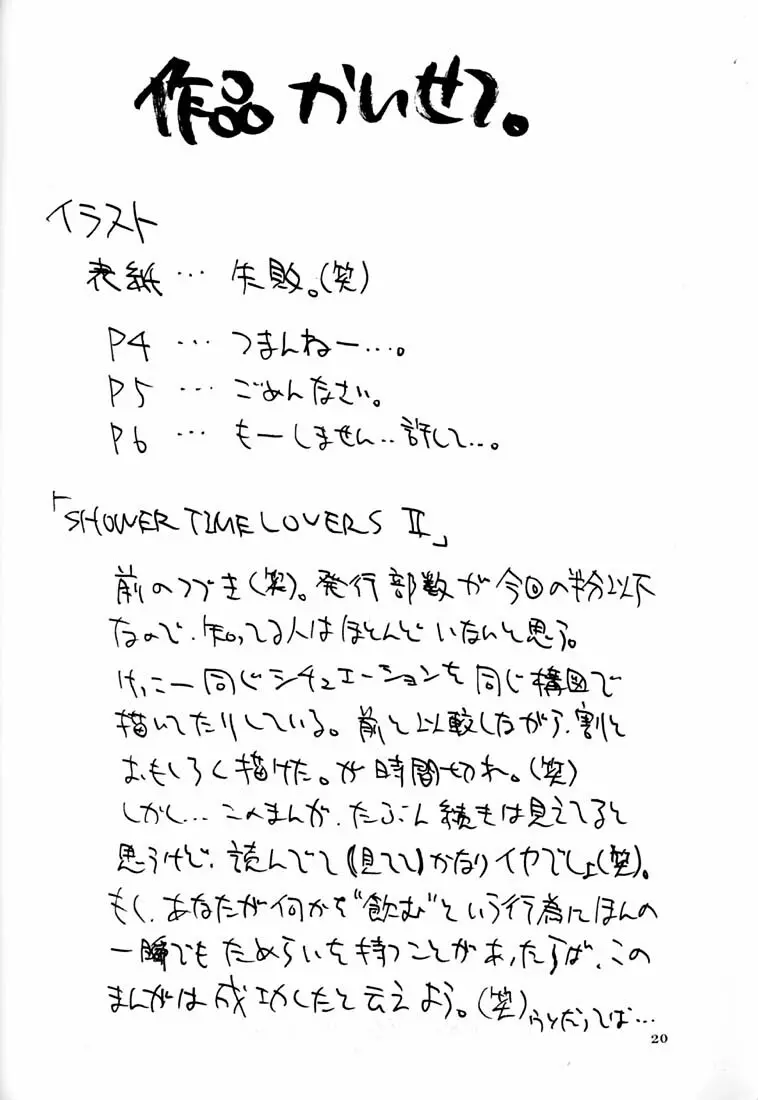 作品かいせつ。
イラスト
表紙…失敗。(笑)
P4…つまんねー…。
P5…ごめんなさい。
P6…もーしません‥許して…。
「SHOWER TIME LOVERS II」
前のつづき(笑)。発行部数が今回の半分以下
なので、知ってる人はほとんどいないと思う。
けっこー同じシチュエーションを同じ構図で
描いてたりしている。前と比較しながら、割と
おもしろく描けた。が時間切れ。(笑)
しかし…このまんが、たぶん続きは見えてると
思うけど、読んでて(見てて)かなりイヤでしょ(笑)。
もし、あなたが何かを"飲む"という行為にほんの
一瞬でもためらいを持つことがあったらば、この
まんがは成功したと云えよう。(笑)うそだってば…
20